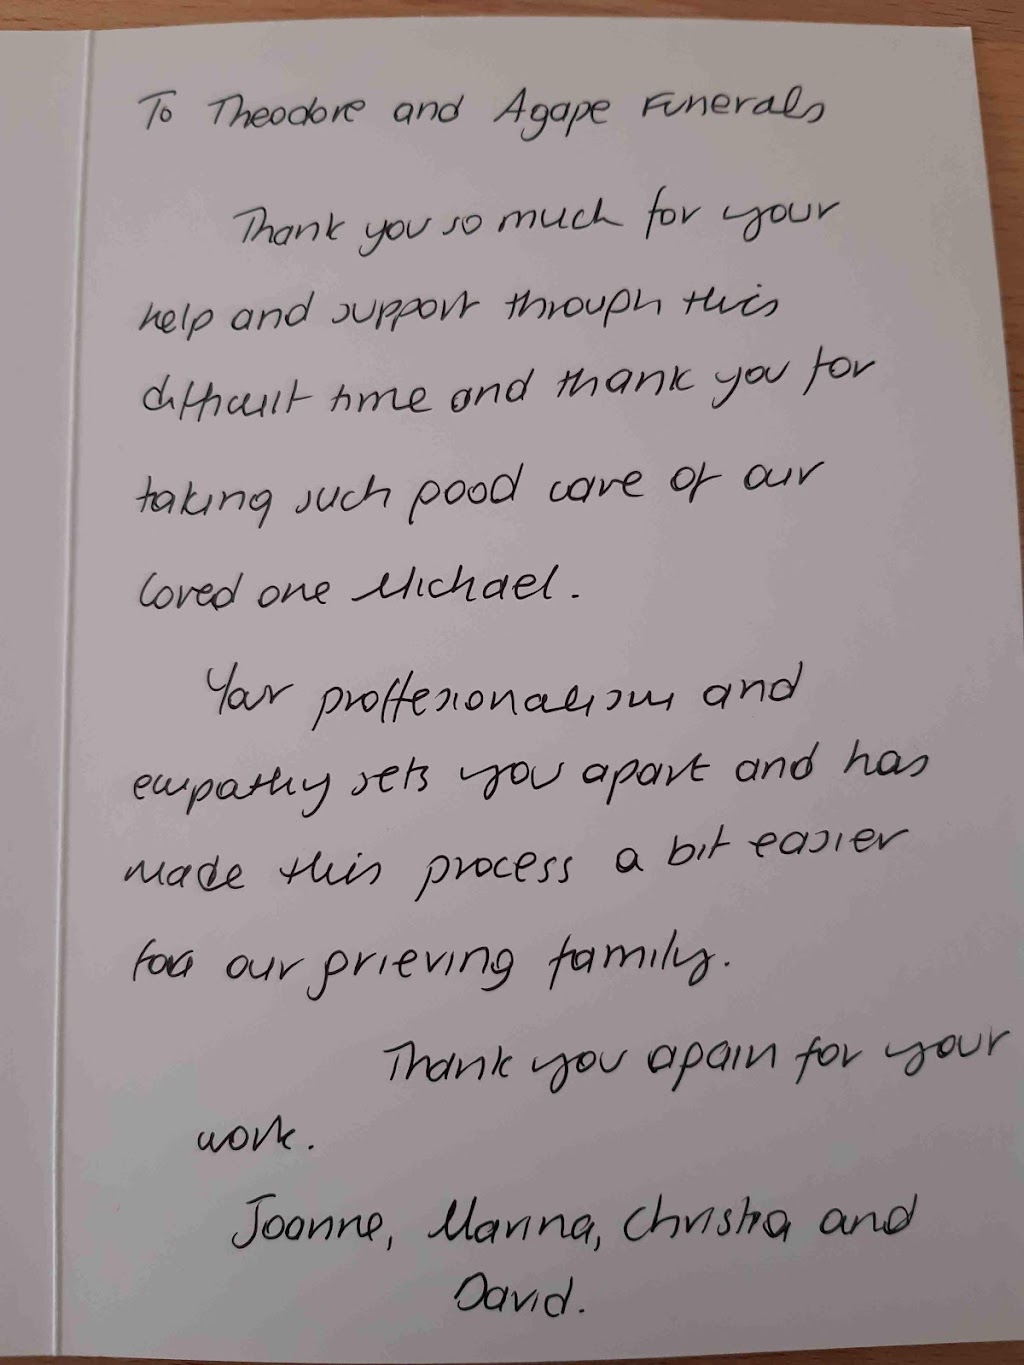 To Theodore and Agape Funerals
Thank you so much for your
help and support through this
difficult time and thank you for
taking such good care of our
loved one Michael.
Your proffesionalism and
empathy sets you apart and has
made this process a bit easier
for our grieving family.
Thank you again for your
work.
Joanne, Marina, Christina and
David.